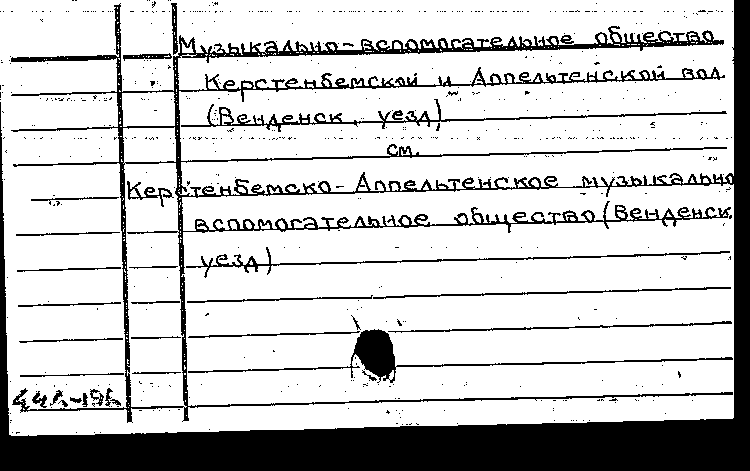 Музыкально-вспомогательное общество
Керстенбемской и Аппельтенской вол.
(Венденск. уезд)
см.
Керстенбемско-Аппельтенское музыкально
вспомогательное общество (Венденск.
уезд)